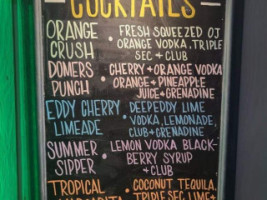 COCKTAILS
ORANGE CRUSH
• FRESH SQUEEZED OJ
ORANGE VODKA, TRIPLE
SEC & CLUB
DOMERS PUNCH
• CHERRY & ORANGE VODKA
ORANGE & PINEAPPLE
JUICE & GRENADINE
EDDY CHERRY LIMEADE
• DEEPEDDY LIME
VODKA, LEMONADE,
CLUB & GRENADINE
SUMMER SIPPER
• LEMON VODKA BLACK-
BERRY SYRUP
& CLUB
TROPICAL MARGARITA
• COCONUT TEQUILA,
TRIPLE SEC, LIME &